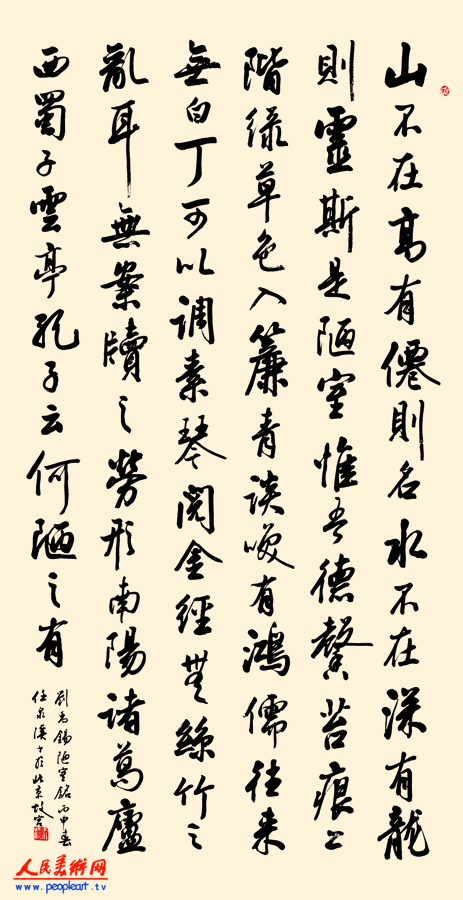 山不在高有僊則名水不在深有龍
則靈斯是陋室惟吾德馨苔痕上
階綠草色入簾青談笑有鴻儒往来
無白丁可以調素琴閱金經無絲竹之
亂耳無案牘之勞形南陽諸葛廬
西蜀子雲亭孔子云何陋之有
劉禹錫陋室銘丙申春
任泉溪於北京故宮
人民美术网
www.peopleart.tv